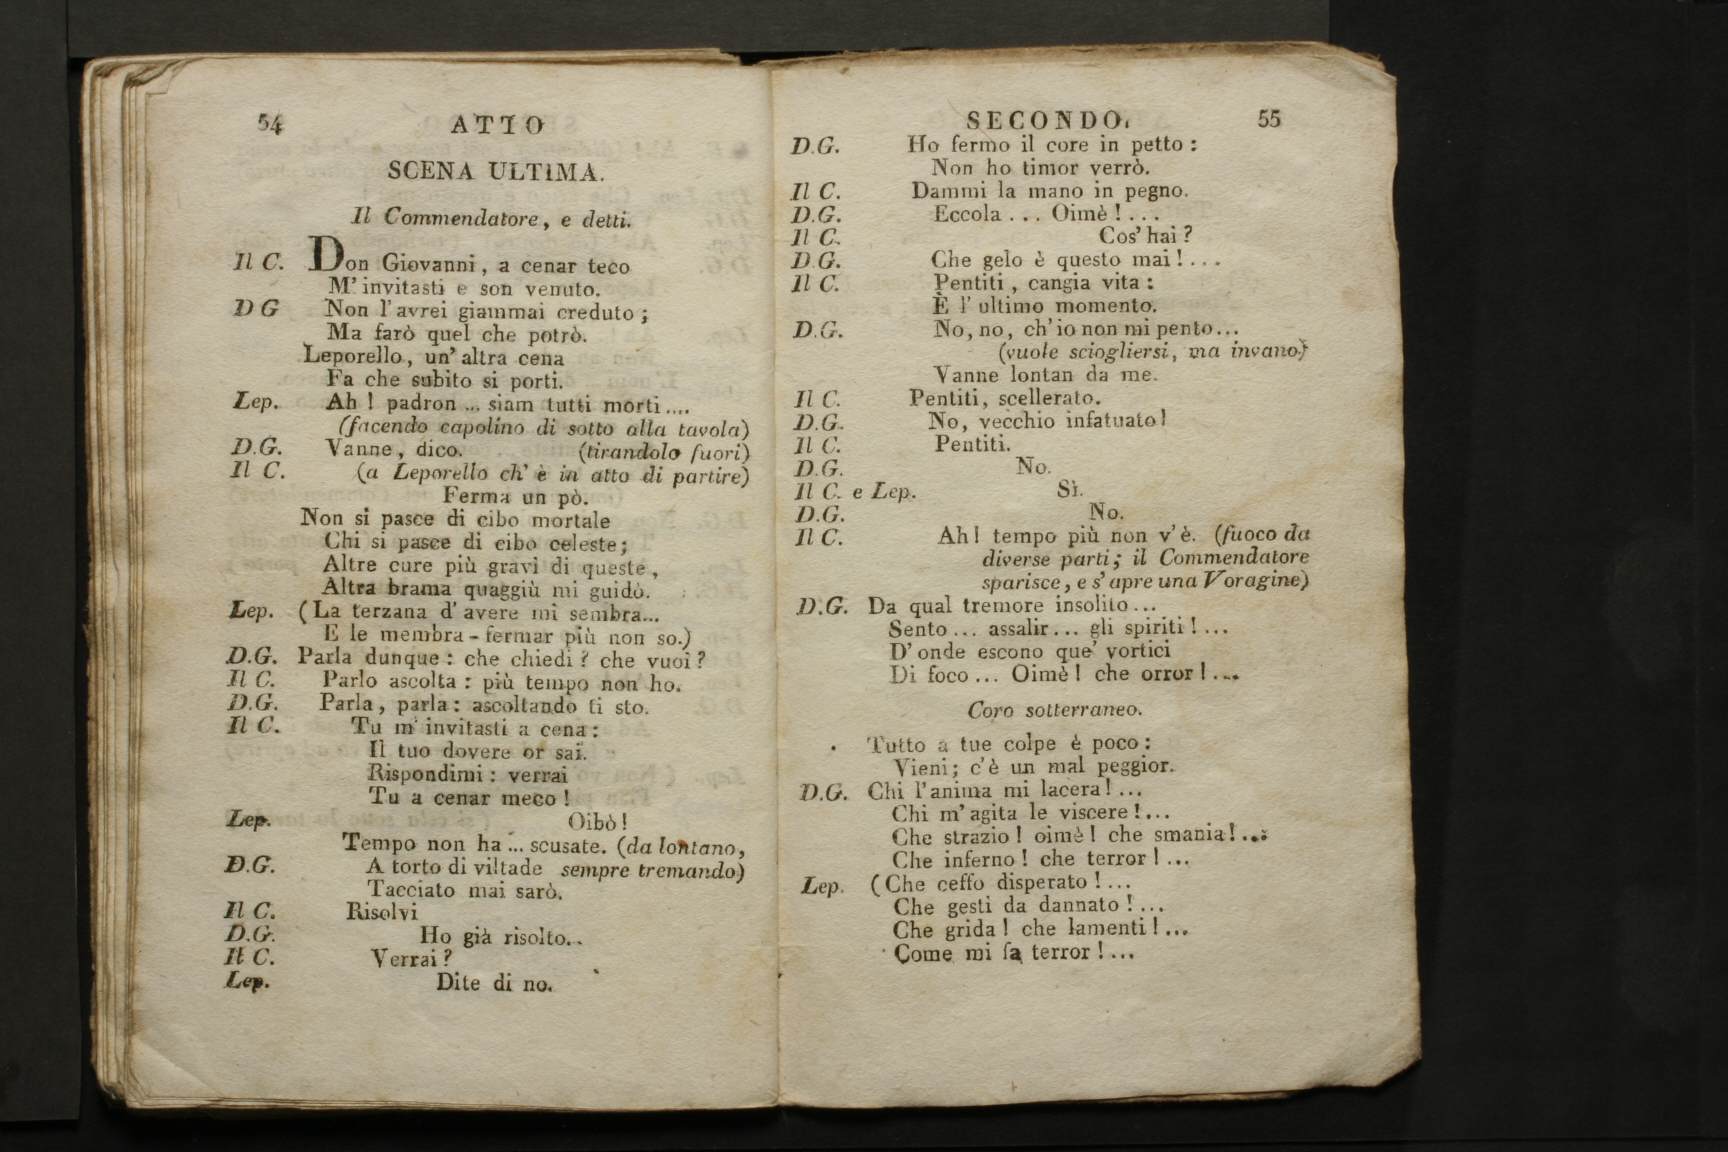 54 ATTO
SCENA ULTIMA.
Il Commendatore, e detti.
Il C. Don Giovanni, a cenar teco
M' invitasti e son venuto.
D G Non l' avrei giammai creduto;
Ma farò quel che potrò.
Leporello, un' altra cena
Fa che subito si porti.
Lep. Ah! padron ... siam tutti morti....
(facendo capolino di sotto alla tavola)
D.G. Vanne, dico. (tirandolo fuori)
Il C. (a Leporello ch' è in atto di partire)
Ferma un pò.
Non si pasce di cibo mortale
Chi si pasce di cibo celeste;
Altre cure più gravi di queste,
Altra brama quaggiù mi guidò.
Lep. (La terzana d' avere mi sembra...
E le membra - fermar più non so.)
D.G. Parla dunque: che chiedi? che vuoi?
Il C. Parlo ascolta: più tempo non ho.
D.G. Parla, parla: ascoltando ti sto.
Il C. Tu m' invitasti a cena:
Il tuo dovere or sai.
Rispondimi: verrai
Tu a cenar meco!
Lep. Oibò!
Tempo non ha ... scusate. (da lontano,
D.G. A torto di viltade sempre tremando)
Tacciato mai sarò.
Il C. Risolvi
D.G. Ho già risolto..
Il C. Verrai?
Lep. Dite di no.
SECONDO. 55
D.G. Ho fermo il core in petto:
Non ho timor verrò.
Il C. Dammi la mano in pegno.
D.G. Eccola ... Oimè!...
Il C. Cos' hai?
D.G. Che gelo è questo mai!...
Il C. Pentiti, cangia vita:
È l' ultimo momento.
D.G. No, no, ch' io non mi pento...
(vuole sciogliersi, ma invano)
Vanne lontan da me.
Il C. Pentiti, scellerato.
D.G. No, vecchio infatuato!
Il C. Pentiti.
D.G. No.
Il C. e Lep. Sì.
D.G. No.
Il C. Ah! tempo più non v' è. (fuoco da
diverse parti; il Commendatore
sparisce, e s' apre una Voragine)
D.G. Da qual tremore insolito...
Sento ... assalir... gli spiriti!...
D' onde escono que' vortici
Di foco ... Oimè! che orror!...
Coro sotterraneo.
Tutto a tue colpe è poco:
Vieni; c' è un mal peggior.
D.G. Chi l' anima mi lacera!...
Chi m' agita le viscere!...
Che strazio! oimè! che smania!...
Che inferno! che terror!...
Lep. (Che ceffo disperato!...
Che gesti da dannato!...
Che grida! che lamenti!...
Come mi fa terror!...